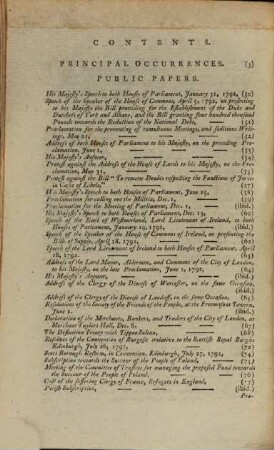 CONTENTS.
PRINCIPAL OCCURRENCES. (3)
PUBLIC PAPERS.
His Majesty's Speech to both Houses of Parliament, January 31, 1792, (50)
Speech of the Speaker of the House of Commons, April 9, 1792, on presenting
to his Majesty the Bill providing for the Establishment of the Duke and
Dutchess of York and Albany, and the Bill granting four hundred thousand
Pounds towards the Reduction of the National Debt, (51)
Proclamation for the preventing of tumultuous Meetings, and seditious Writings,
May 21, (52)
Address of both Houses of Parliament to his Majesty, on the preceding Proclamation,
June 1,
His Majesty's Answer,
Protest against the Address of the House of Lords to his Majesty, on the
Proclamation, May 31, (55)
Protest against the Bill "To remove Doubts respecting the Functions of Juries
in Cases of Libels," (57)
His Majesty's Speech to both Houses of Parliament, June 15,
Proclamation for calling out the Militia, Dec. 1,
Proclamation for the Meeting of Parliament, Dec. 1, (ibid.)
His Majesty's Speech to both Houses of Parliament, Dec. 13,
Speech of the Earl of Westmorland, Lord Lieutenant of Ireland, to both
Houses of Parliament, January 19, 1792, (ibid.)
Speech of the Speaker of the House of Commons of Ireland, on presenting the
Bills of Supply, April 18, 1792,
Speech of the Lord Lieutenant of Ireland to both Houses of Parliament, April
18, 1792.
Address of the Lord Mayor, Aldermen, and Commons of the City of London,
to his Majesty, on the late Proclamation, June 1, 1792, (64)
His Majesty's Answer, (ibid.)
Address of the Clergy of the Diocese of Worcester, on the same Occasion,
(ibid.)
Address of the Clergy of the Diocese of Landaff, on the same Occasion,
Resolutions of the Society of the Friends of the People, at the Freemasons Tavern,
June 2. (ibid.)
Declaration of the Merchants, Bankers, and Traders of the City of London, at
Merchant Taylors Hall, Dec. 6, (67)
The Dissenters Triennial Toasts, (68)
Resolves of the Convention of Burgesses relative to the Scottish Royal Burghs
Edinburgh, July 26, 1792, (72)
Scots Borough Reform, in Convention, Edinburgh, July 27, 1792, (74)
Subscription towards the Succour of the People of Poland,
Meeting of the Committee of Trustees for managing the proposed Fund towards
the Succour of the People of Poland, (76)
Case of the suffering Clergy of France, Refugees in England, (77)
Parish Subscription, (ibid.)
Pro-